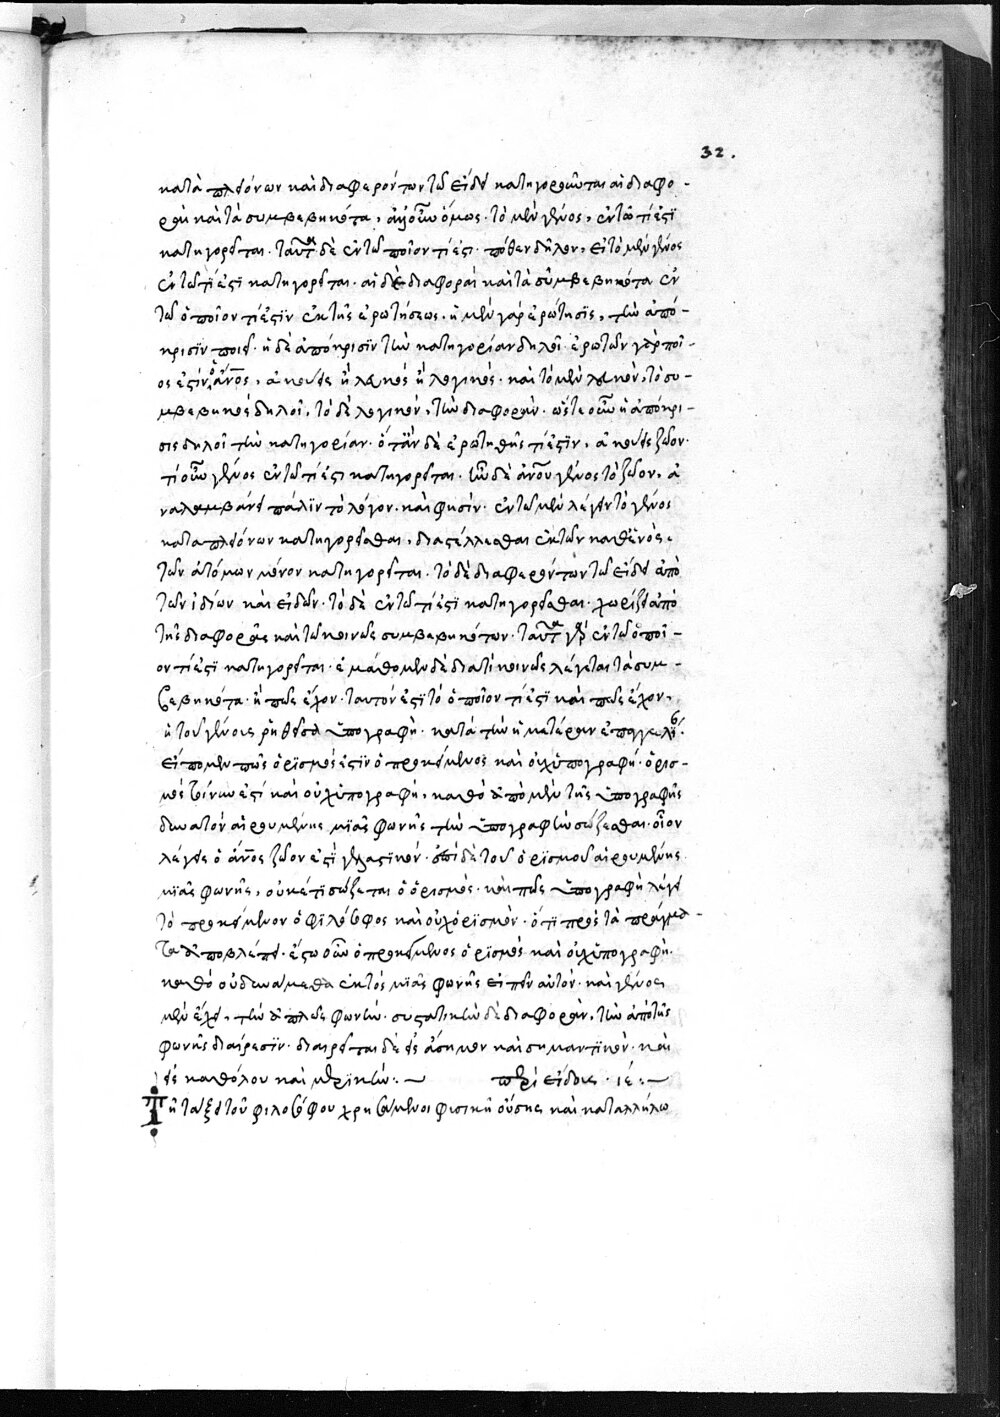 32.
κατὰ πλειόνων καὶ διαφερόντων τῶ εἴδει κατηγοροῦνται αἱ διαφο-
ραὶ καὶ τὰ συμβεβηκότα, ἀλλ' οὖν ὅμως· τὸ μὲν γένος, ἐν τῶ τί ἐστϊ
κατηγορεῖται· ταῦτα δὲ ἐν τῶ ποῖον τί ἐστι· πόθεν δῆλον, εἰ τὸ μὲν γένος
ἐν τῶ τί ἐστϊ κατηγορεῖται· αἱ δὲ διαφοραὶ καὶ τὰ συμβεβηκότα ἐν
τῶ ὁποῖον τί ἐστϊν ἐκ τῆς ἐρωτήσεως· ἡ μὲν γὰρ ἐρώτησϊς, τὴν ἀπό-
κρισϊν ποιεῖ· ἡ δὲ ἀπόκρισϊν τὴν κατηγορίαν δηλοῖ· ἐρωτῶν γὰρ ποῖ-
ος ἐστίν ὁ ἄνος, ἀκούεις ἢ λευκός ἢ λογικός· καὶ τὸ μὲν λευκόν, τὸ συ-
μβεβηκός δηλοῖ, τὸ δὲ λογικόν, τὴν διαφοράν· ὥστε οὖν ἡ ἀπόκρι-
σις δηλοῖ τὴν κατηγορίαν· ὅταν δὲ ἐρωτηθῆς τί ἐστϊν, ἀκούεις ζῶον·
τί οὖν γένος ἐν τῶ τί ἐστι κατηγορεῖται· ἦν δὲ ἀνου γένος τὸ ζῶον, ἀ
ναλαμβάνει πάλϊν τὸ λόγον· καὶ φησὶν· ἐν τῶ μὲν λέγειν τὸ γένος
κατα πλειόνων κατηγορεῖσθαι, διαστέλλεσθαι ἐκ τῶν καθ' ἑνὸς
τῶν ἀτόμων μόνον κατηγορεῖται· τὸ δὲ διαφερόντων τῶ εἴδει ἀπὸ
τῶν ἰδίων καὶ εἰδῶν· τὸ δὲ ἐν τῶ τί ἐστϊ κατηγορεῖσθαι· χωρίζει ἀπὸ
τῆς διαφορᾶς καὶ τῶν κοινῶς συμβεβηκότων· ταῦτα γὰρ ἐν τῶ ὁποῖ-
ον τί ἐστϊ κατηγορεῖται· ἐμάθομεν δὲ διατί κοινῶς λέγεται τὰ συμ-
βεβηκότα· ἢ πῶς ἔχον· ταυτόν ἐστϊ τό ὁποῖον τί ἐστϊ καὶ πῶς ἔχον,
ἡ τοῦ γένους ῥηθεῖσα ὑπογραφή· κατὰ τὴν ἡμετέραν ἐπαγγελίαν
εἴπομεν πῶς ὁρϊσμός ἐστϊν ὁ προκείμενος καὶ οὐχ ὑπογραφή· ὁρισ-
μός τοίνυν ἐστὶ καὶ οὐχ ὑπογραφή, καθὸ ἐπὶ μὲν τῆς ὑπογραφῆς
δυνατὸν αἱρουμένης μϊᾶς φωνῆς τὴν ὑπογραφὴν σώζεσθαι· οἷον
λέγεις ὁ ἄνος ζῶον ἐστϊ γελαστϊκόν· ἐπὶ δὲ τοῦ ὁρϊσμοῦ αἱρουμένης
μϊᾶς φωνῆς, οὐκέτι σώζεται ὁ ὁρισμός· καὶ πῶς ὑπογραφὴ λέγει
τὸ προκείμενον ὁ φϊλόσοφος καὶ οὐχ ὁρϊσμόν· ὅτι πρὸς τὰ πράγμα-
τα ἀποβλέπει· ἔστω οὖν ὁ προκείμενος ὁρϊσμός καὶ οὐχ ὑπογραφή·
καθὸ οὐ δυνάμεθα ἐκτός μϊᾶς φωνῆς εἰπεῖν αὐτόν· καὶ γένος
μὲν ἔχει, τὴν ἁπλῶς φωνήν· συστατικὴν δὲ διαφοράν, τὴν ἀπὸ τῆς
φωνῆς διαίρεσϊν· διαιρεῖται δὲ εἰς ἄσημον καὶ σημαντϊκόν· καὶ
εἰς καθόλου καὶ μερϊκήν:~ περὶ εἴδους · ιε:~
Τῆ τάξει τοῦ φιλοσόφου χρησάμενοι φυσικῆ οὔσης καὶ καταλλήλω